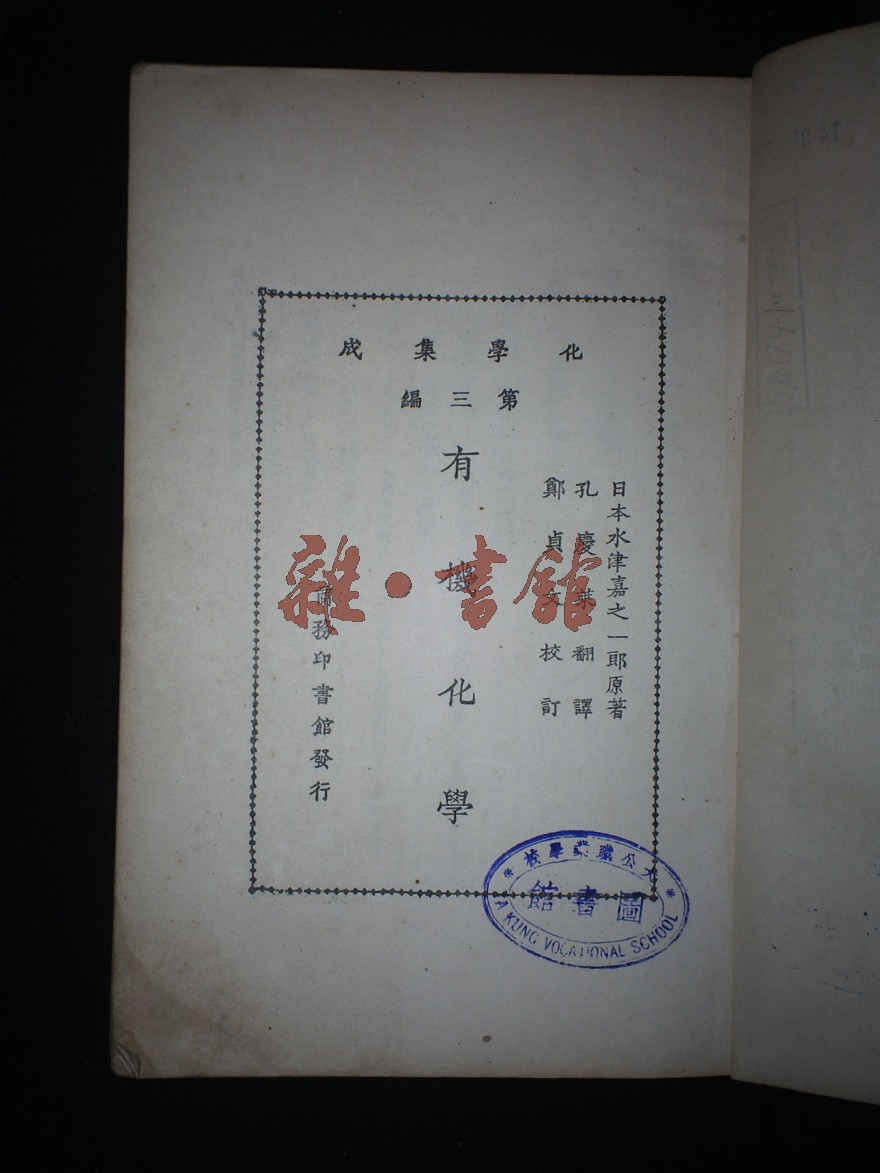 化學集成
第三編
日本水津嘉之一郎原著
孔慶萊翻譯
鄭貞文校訂
有機化學
商務印書館發行
雜·書館
大公職業學校
圖書館
TA KUNG VOCATIONAL SCHOOL